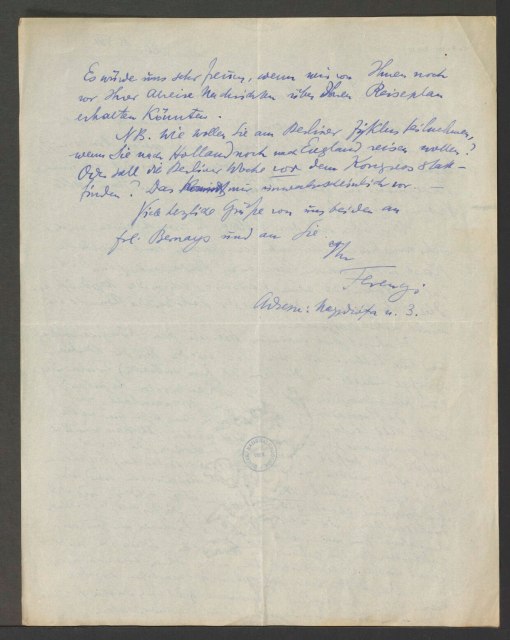 Es würde uns sehr freuen, wenn wir von Ihnen noch
vor Ihrer Abreise Nachrichten über Ihren Reiseplan
erhalten könnten.
NB. Wie wollen Sie am Berliner Zyklus teilnehmen,
wenn Sie nach Holland noch nach England reisen wollen?
Oder soll die Berliner Woche vor dem Kongress statt-
finden? Das kommt mir unwahrscheinlich vor. —
Viele herzliche Grüße von uns beiden an
Frl. Bernays und an Sie
Ihr
Ferenczi
Adresse: Nagydiófa u. 3.